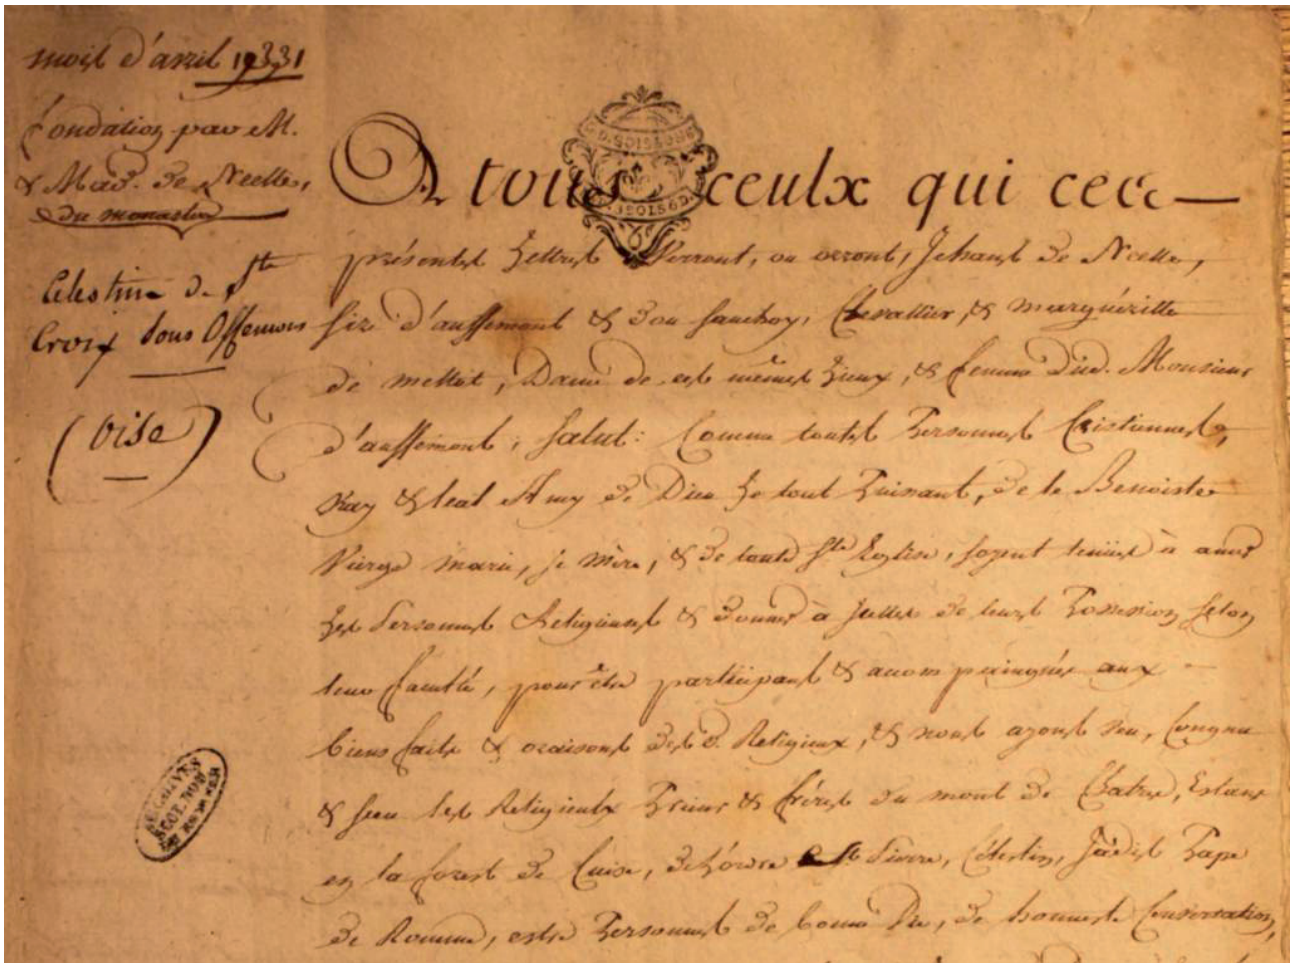 mois d'avril 1331
fondation par M.
& Mad. de Neelle,
du monastere
Celestins de Ste
Croix sous Offemont
(Oise)
A tous ceulx qui ces
présentes Lettres Verront, ou orront, Jehans de Neelle,
sire d'auffemont & dou sauchoy, Chevallier, & margueritte
de mellot, Dame de ces mêmes Lieux, & femme dud. Monsieur
d'auffemont, Salut: Comme toutes Personnes Cristiennes,
vray & leal Amy de Dieu Le tout Puissant, de le Benoiste
Vierge marie, se mère, & de toute Ste Eglise, soyent tenües à amer
Les Personnes Religieuses & donner à Julles de leurs Possession selon
leur faculté, pour être participans & acompaingnés aux
biens faits & oraisons desd. Religieux, & nous ayons veu, Congnu
& sceu les Religieulx Prieur & fréres du mont de Chatres, Estans
en la forest de Cuise, de L'ordre St Pierre, Célestin, Jadis Pape
de Romme, estre Personnes de bonne Vie, de honneste Conversation,
ARCHIVES